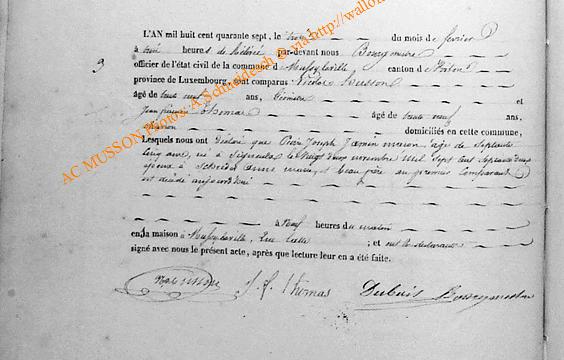 L'AN mil huit cent quarante sept, le trois du mois de février
à trois heures de relevée par-devant nous Bourgmestre
9 officier de l'état civil de la commune d Mussy-la-ville canton d
province de Luxembourg, sont comparus Nicolas Husson
âgé de trente neuf ans, et
Jean Pierre Thomas âgé de trente neuf ans,
domiciliés en cette commune,
Lesquels nous ont déclaré que Pierre Joseph Jamin maçon âgé de septante
cinq ans, né à Signeulx le vingt deux novembre mil sept cent septante deux
époux à et beau père au premier comparant
est décédé aujourd'hui
à neuf heures du matin
en sa maison à Mussy-la-ville, ; et ont les déclarants
signé avec nous le présent acte, après que lecture leur en a été faite.
J. P. Thomas Dubois Bourgmestre
AC MUSSON Photos: A.Schneidesch @ via http://wallo